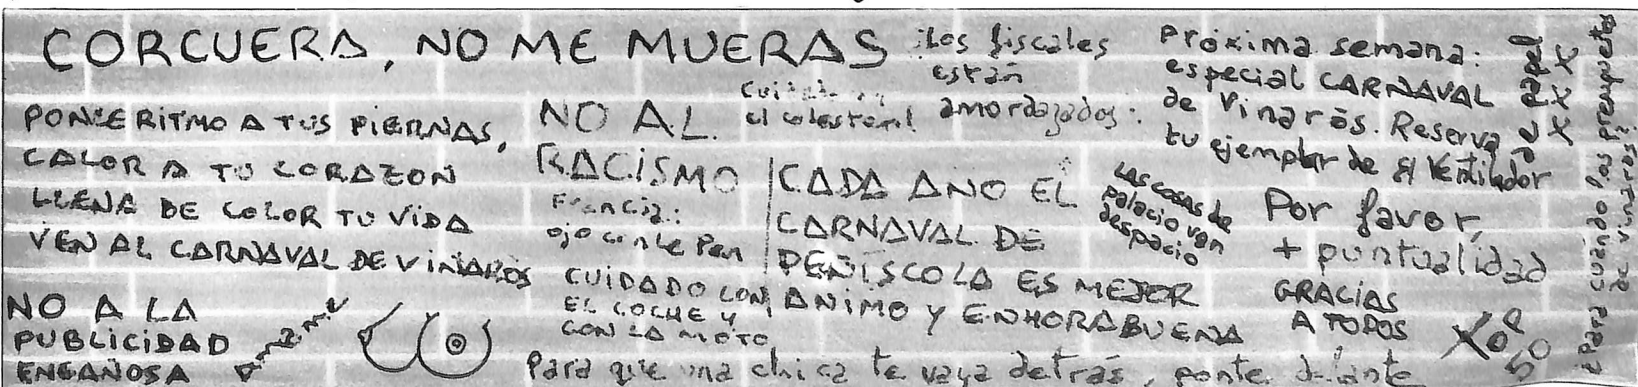 CORCUERA, NO ME MUERAS
PONLE RITMO A TUS PIERNAS,
CALOR A TU CORAZON
LLENA DE COLOR TU VIDA
VEN AL CARNAVAL DE VIÑAROS
NO A LA
PUBLICIDAD
ENGAÑOSA
NO AL
RACISMO
Francia:
ojo con le Pen
CUIDADO CON
EL COCHE Y
CON LA MOTO
el colesterol
Los fiscales
están
amordazados.
CADA ANO EL
CARNAVAL DE
PEÑISCOLA ES MEJOR
ANIMO Y ENHORABUENA
LAS COSAS de
palacio van
despacio
Próxima semana:
especial CARNAVAL
de Vinaròs. Reserva
tu ejemplar de El Ventilador
Por favor,
+ puntualidad
GRACIAS
A TODOS
Para que una chica te vaya detrás, ponte delante
¿Para cuando los presupuestos
de Vinaròs?